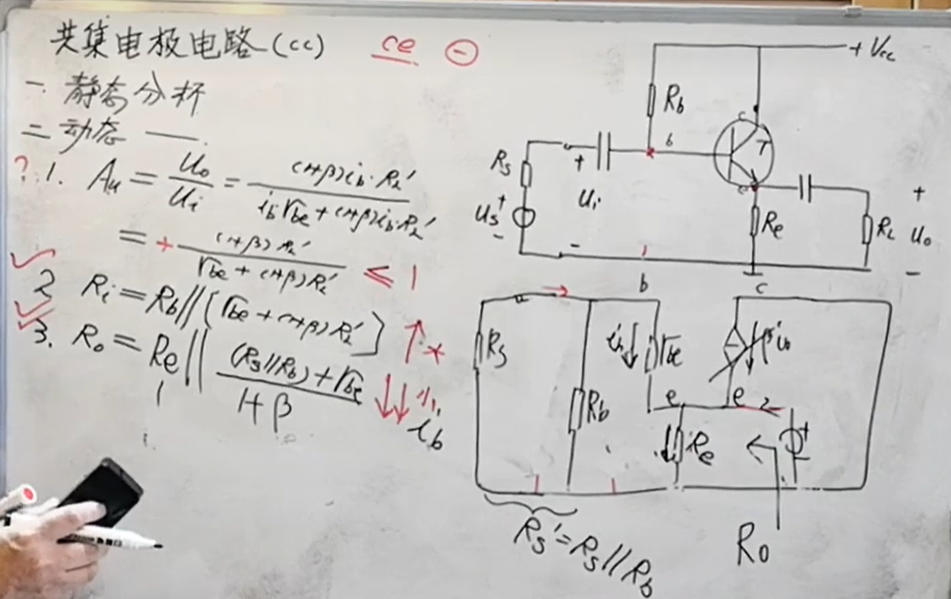 共集电极电路(cc) ce ⊖
一 静态分析
二 动态 ——.
? 1. Au = Uo/Ui = (1+β)ib·RL'/(ib rbe + (1+β)ib·RL')
= + (1+β)RL'/(rbe + (1+β)RL') ≤ 1
2 Ri = Rb//[rbe + (1+β)RL'] ↑
3. Ro = Re//((Rs//Rb)+rbe)/(1+β) ↓↓
ib
+Vcc
Rb
b
c
T
e
Rs
+
Ui
-
Us
+
-
Re
RL
+
Uo
-
b
c
Rs
Rb
ib
rbe
βib
e
e
Re
+
-
Ro
Rs'=Rs//Rb